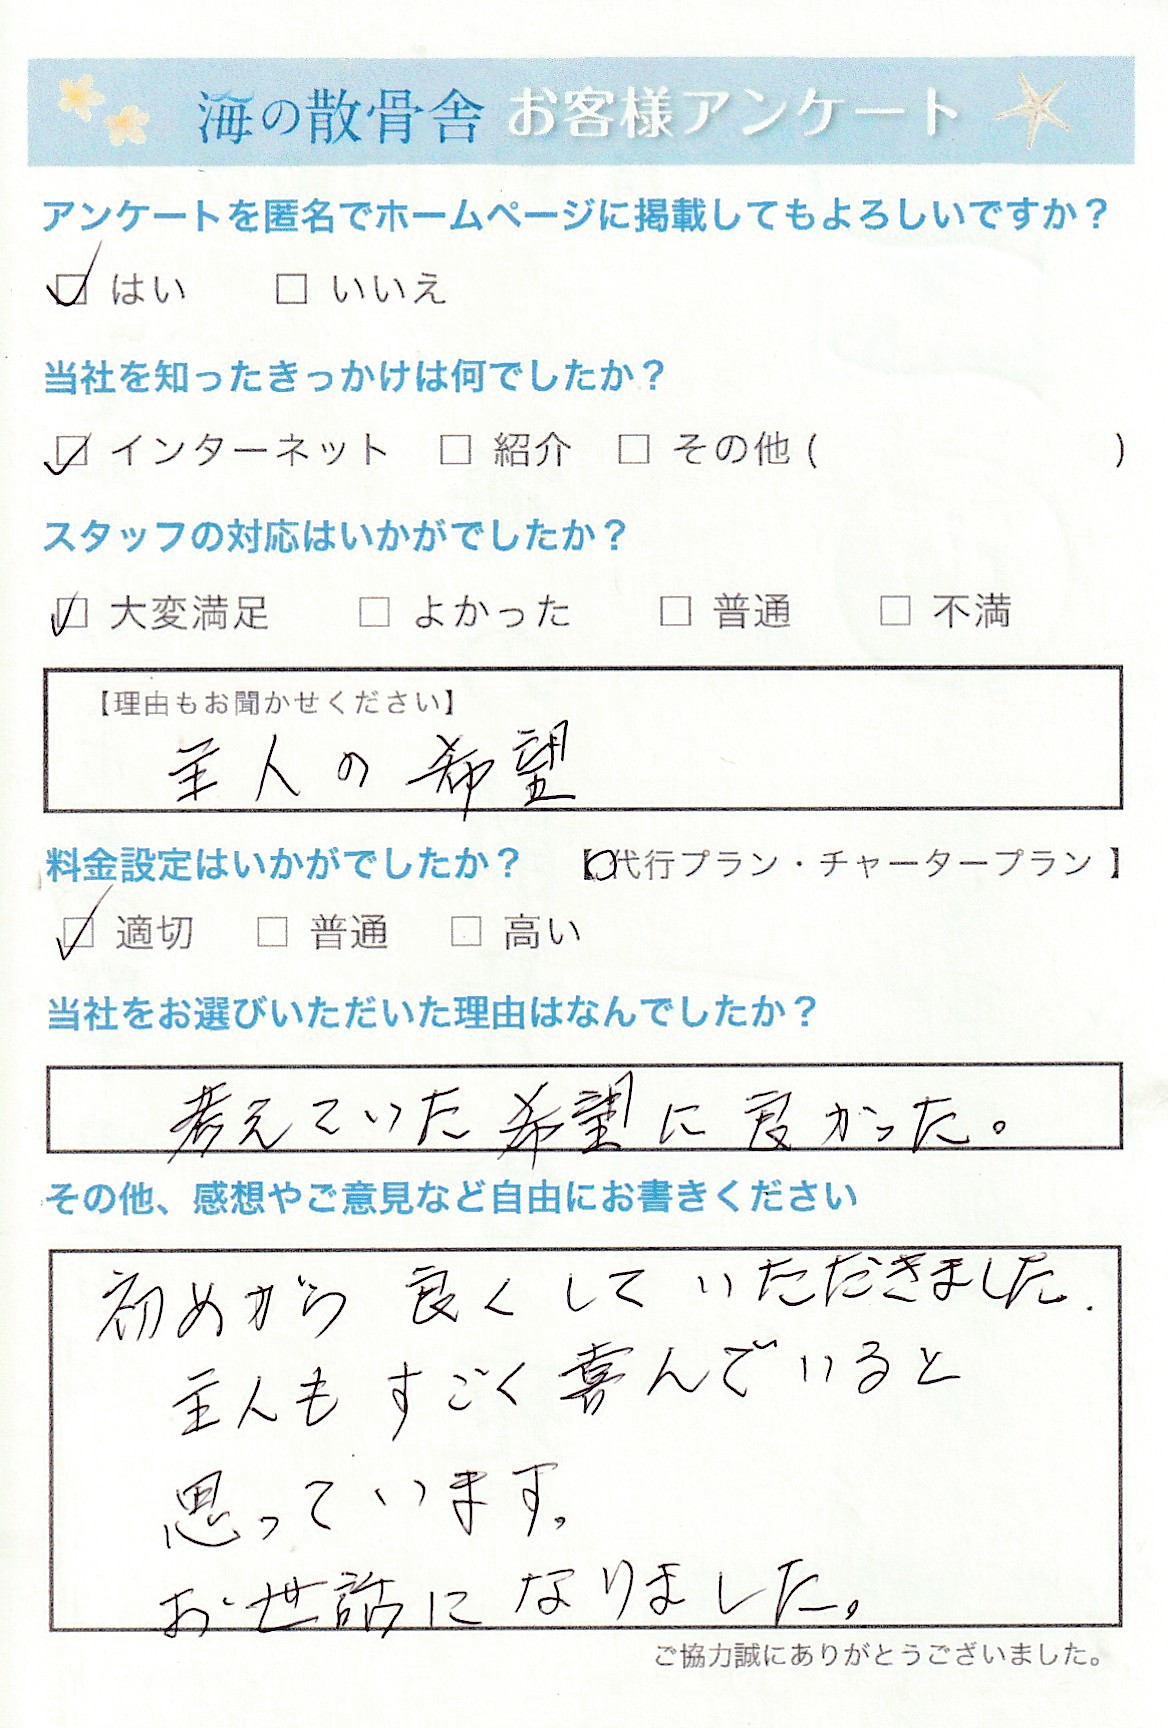 海の散骨舎 お客様アンケート
アンケートを匿名でホームページに掲載してもよろしいですか？
☑ はい □ いいえ
当社を知ったきっかけは何でしたか？
☑ インターネット □ 紹介 □ その他 ( )
スタッフの対応はいかがでしたか？
☑ 大変満足 □ よかった □ 普通 □ 不満
【理由もお聞かせください】
主人の希望
料金設定はいかがでしたか？ 【代行プラン・チャータープラン 】
☑ 適切 □ 普通 □ 高い
当社をお選びいただいた理由はなんでしたか？
考えていた希望に良かった。
その他、感想やご意見など自由にお書きください
初めから良くしていただきました.
主人もすごく喜んでいると
思っています。
お世話になりました。
ご協力誠にありがとうございました。